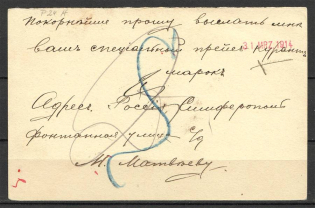 P24 A
покорнѣйше прошу выслать мнѣ
вашъ спеціальной прейсъ курантъ
31 МРТ 1914
марокъ
Адресъ. Россія Симферополь
фонтанная улица с/д
М. Матвѣеву